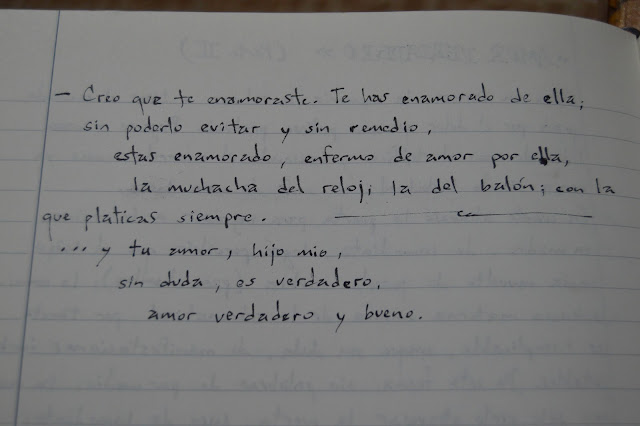 — Creo que te enamoraste. Te has enamorado de ella;
sin poderlo evitar y sin remedio,
estas enamorado, enfermo de amor por ella,
la muchacha del reloj; la del balón; con la
que platicas siempre.
... y tu amor, hijo mio,
sin duda, es verdadero,
amor verdadero y bueno.